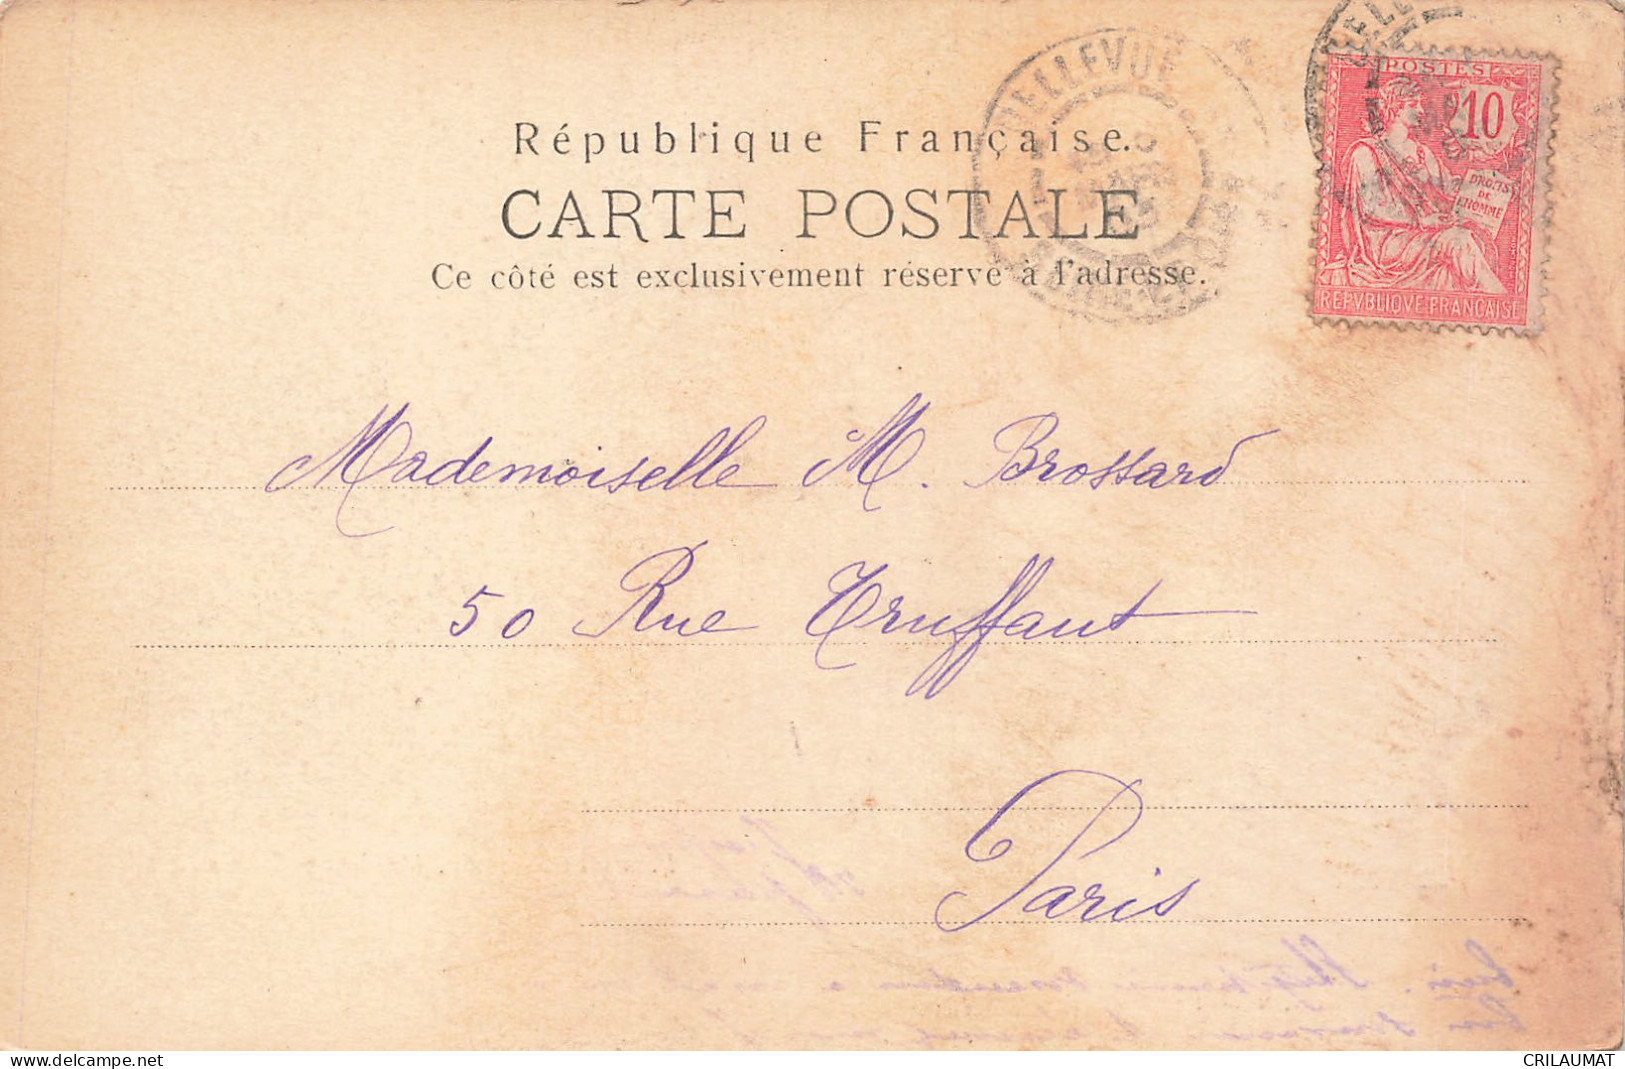 BELLEVUE
POSTES
10
DROITS
DE
L'HOMME
REPVBLIQVE FRANÇAISE
République Française.
CARTE POSTALE
Ce côté est exclusivement réservé à l'adresse.
Mademoiselle M. Brossard
50 Rue Truffaut
Paris
delcampe.net
CRILAUMAT